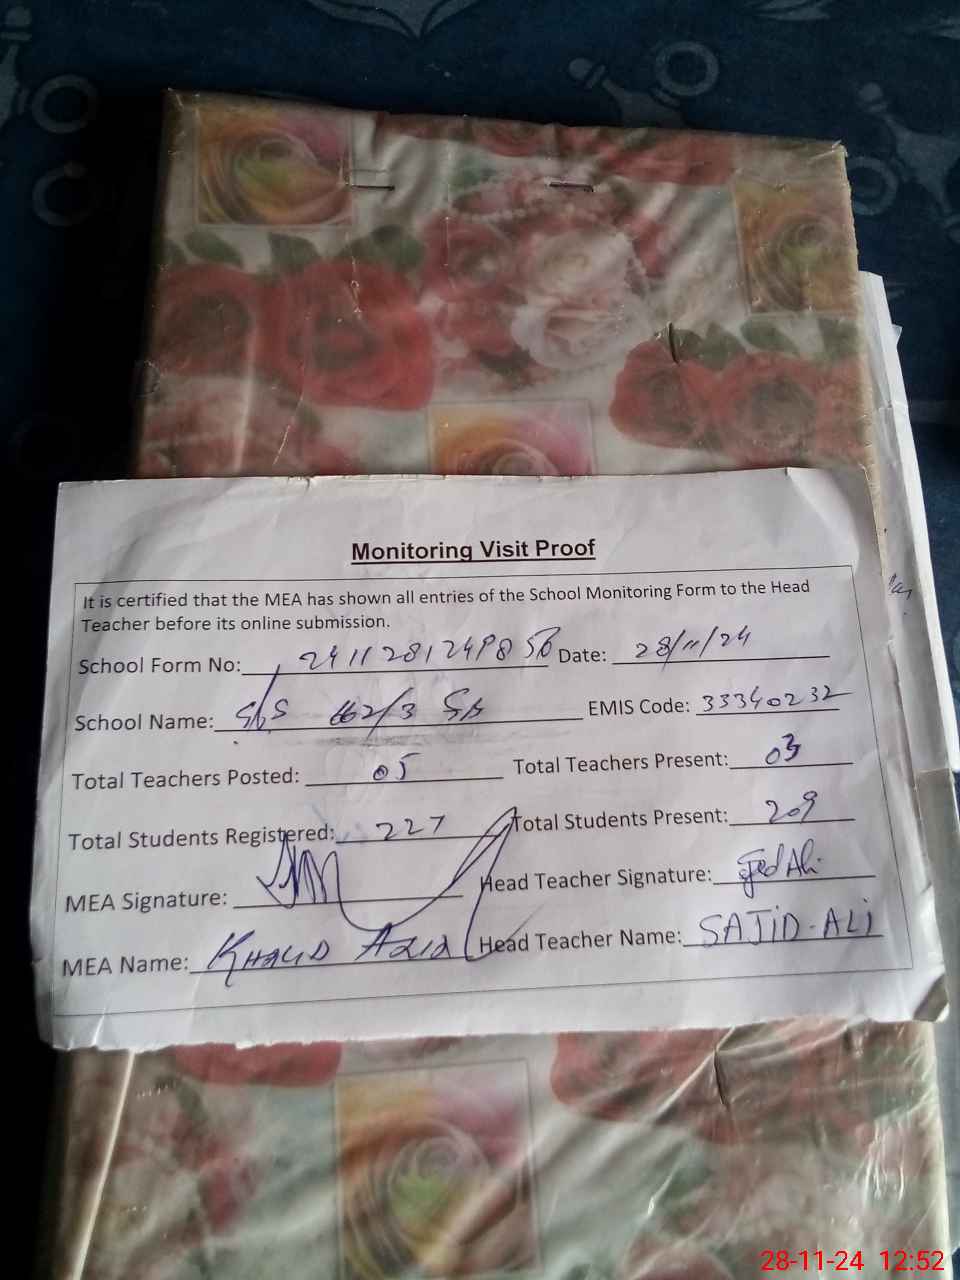 Monitoring Visit Proof
It is certified that the MEA has shown all entries of the School Monitoring Form to the Head
Teacher before its online submission.
School Form No: 24112812498 Date: 28/11/24
School Name: 662/3 EMIS Code: 33340232
Total Teachers Posted: 05 Total Teachers Present: 03
Total Students Registered: 227 Total Students Present: 209
MEA Signature: Head Teacher Signature: Ali
MEA Name: KHALID Head Teacher Name: SAJID-ALI
28-11-24 12:52